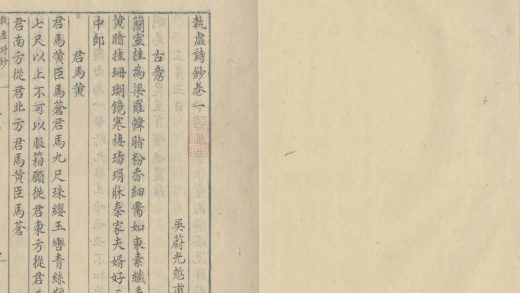 執虛詩鈔卷一
吳蔚光悊甫
古意
蘭室桂為梁羅幃脂粉香細如束素纖手
挂珊瑚鏡瑇瑁牀秦家夫婿好
中郎
君馬黃
君馬黃臣馬蒼君馬九尺珠纓玉轡青絲
七尺以上不可以服箱願從君東方從君
君南方從君北方君馬黃臣馬蒼
執虛詩鈔